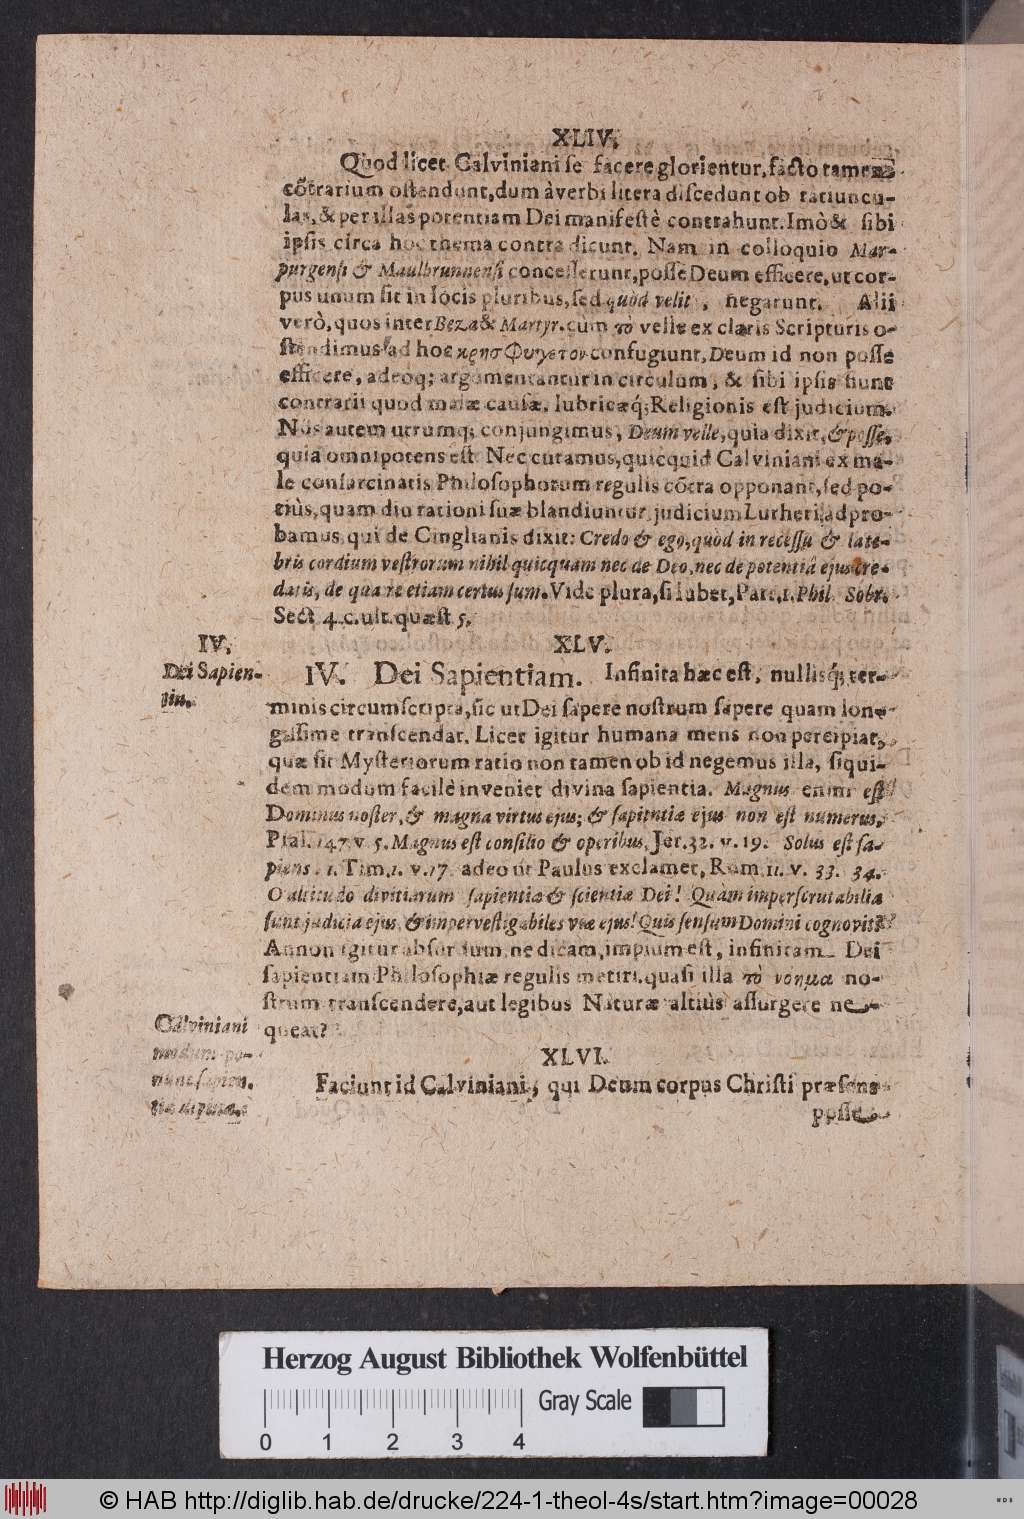 XLIV.
Quod licet Calviniani se facere glorientur, facto tamen
cōtrarium ostendunt, dum à verbi litera discedunt ob ratiuncu-
las, & per illas potentiam Dei manifestè contrahunt. Imò & sibi
ipsis circa hoc thema contradicunt. Nam in colloquio Mar-
purgensi & Maulbrunnensi concesserunt, posse Deum efficere, ut cor-
pus unum sit in locis pluribus, sed quòd velit, negarunt. Alii
verò, quos inter Beza & Martyr. cùm τὸ velle ex claris Scripturis o-
stendimus ad hoc κρησφυγετον confugiunt, Deum id non posse
efficere, adeoq; argumentantur in circulum, & sibi ipsis fiunt
contrarii quod malæ causæ, lubricæq́; Religionis est judicium.
Nos autem utrumq; conjungimus, Deum velle, quia dixit, & posse,
quia omnipotens est. Nec curamus, quicquid Calviniani ex ma-
le consarcinatis Philosophorum regulis cōtra opponant, sed po-
tiùs, quam diu rationi suæ blandiuntur, judicium Lutheri adpro-
bamus, qui de Cinglianis dixit: Credo & ego, quòd in recessu & late-
bris cordium vestrorum nihil quicquam nec de Deo, nec de potentiâ ejus cre-
datis, de qua re etiam certus sum. Vide plura, si lubet, Part. 1. Phil. Sobr.
Sect 4. c. ult. quæst 5.
XLV.
IV.
Dei Sapien-
tia.
IV. Dei Sapientiam. Infinita hæc est, nullisq́; ter-
minis circumscripta, sic ut Dei sapere nostrum sapere quam lon-
gissime transcendat. Licet igitur humana mens non percipiat,
quæ sit Mysteriorum ratio non tamen ob id negemus illa, siqui-
dem modum facilè inveniet divina sapientia. Magnus enim est
Dominus noster, & magna virtus ejus; & sapientiæ ejus non est numerus,
Psal. 147. v. 5. Magnus est consilio & operibus, Jer. 32. v. 19. Solus est sa-
piens. 1. Tim. 1. v. 17. adeo ut Paulus exclamet, Rom. 11. v. 33. 34.
O altitudo divitiarum sapientiæ & scientiæ Dei! Quàm imperscrutabilia
sunt judicia ejus, & impervestigabiles viæ ejus! Quis sensum Domini cognovit?
Annon igitur absurdum, ne dicam, impium est, infinitam Dei
sapientiam Philosophiæ regulis metiri, quasi illa τὸ νοημα no-
strum transcendere, aut legibus Naturæ altiùs assurgere ne-
queat?
XLVI.
Calviniani
modum po-
nunt sapien-
tiæ divinæ.
Faciunt id Calviniani, qui Deum corpus Christi præsens
posse
Herzog August Bibliothek Wolfenbüttel
0 1 2 3 4
Gray Scale
© HAB http://diglib.hab.de/drucke/224-1-theol-4s/start.htm?image=00028